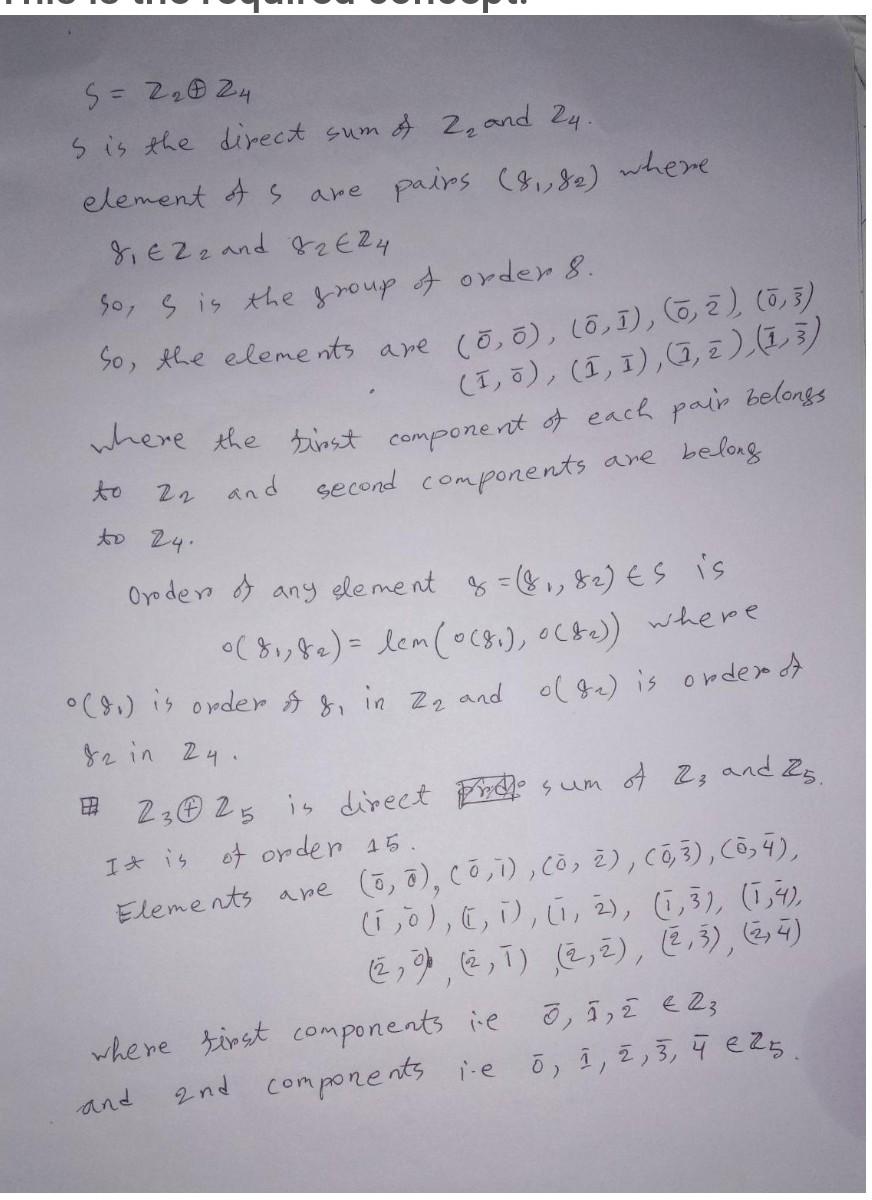 This is the required concept.
S = Z₂⊕Z₄
S is the direct sum of Z₂ and Z₄.
element of S are pairs (g₁,g₂) where
g₁∈Z₂ and g₂∈Z₄
So, S is the group of order 8.
So, the elements are (0̄,0̄), (0̄,1̄), (0̄,2̄), (0̄,3̄)
(1̄,0̄), (1̄,1̄), (1̄,2̄), (1̄,3̄)
where the first component of each pair belongs
to Z₂ and second components are belong
to Z₄.
Order of any element g=(g₁,g₂)∈S is
o(g₁,g₂)= lcm(o(g₁), o(g₂)) where
o(g₁) is order of g₁ in Z₂ and o(g₂) is order of
g₂ in Z₄.
Z₃⊕Z₅ is direct sum of Z₃ and Z₅.
It is of order 15.
Elements are (0̄,0̄), (0̄,1̄), (0̄,2̄), (0̄,3̄), (0̄,4̄),
(1̄,0̄), (1̄,1̄), (1̄,2̄), (1̄,3̄), (1̄,4̄),
(2̄,0̄), (2̄,1̄), (2̄,2̄), (2̄,3̄), (2̄,4̄)
where first components i.e 0̄, 1̄, 2̄ ∈Z₃
and 2nd components i.e 0̄, 1̄, 2̄, 3̄, 4̄ ∈Z₅.